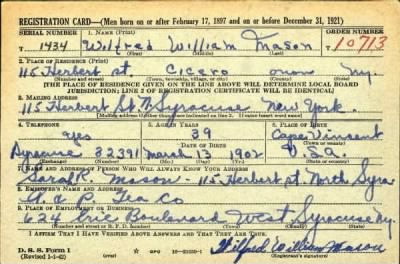 REGISTRATION CARD—(Men born on or after February 17, 1897 and on or before December 31, 1921)
SERIAL NUMBER 1. NAME (Print) ORDER NUMBER
1434 Wilfred William Mason 10713
2. PLACE OF RESIDENCE (Print)
115 Herbert st Cicero onon N.y.
(Number and street) (Town, township, village, or city) (County) (State)
[THE PLACE OF RESIDENCE GIVEN ON THE LINE ABOVE WILL DETERMINE LOCAL BOARD
JURISDICTION; LINE 2 OF REGISTRATION CERTIFICATE WILL BE IDENTICAL]
3. MAILING ADDRESS
115 Herbert St. N. Syracuse New York.
4. TELEPHONE 5. AGE IN YEARS 6. PLACE OF BIRTH
yes 39 Cape Vincent
DATE OF BIRTH
Syracuse 32391 March 13 1902 U.S.
(Exchange) (Number) (Mo.) (Day) (Yr.) (State or country)
7. NAME AND ADDRESS OF PERSON WHO WILL ALWAYS KNOW YOUR ADDRESS
Mason - 115 Herbert st. North Syra
8. EMPLOYER'S NAME AND ADDRESS
A. & P. Tea Co
9. PLACE OF EMPLOYMENT OR BUSINESS
624 Erie Boulevard West Syracuse N.y.
I AFFIRM THAT I HAVE VERIFIED ABOVE ANSWERS AND THAT THEY ARE TRUE.
D. S. S. Form 1
(Revised 1-1-42) (over) Wilfred William Mason